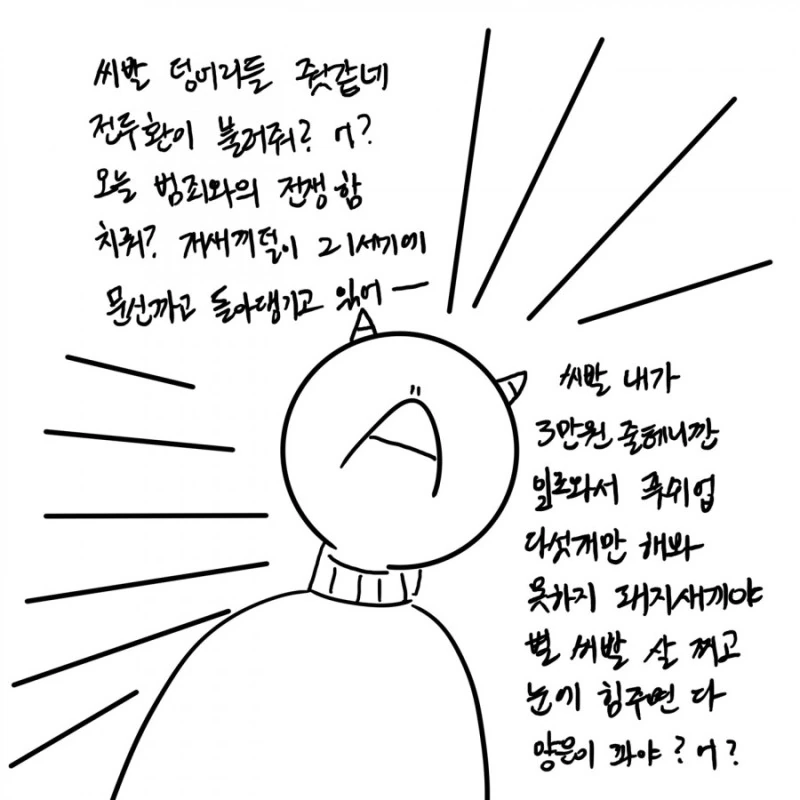 씨발 덩어리들 줫같네
전두환이 불러줘? 어?
오늘 범죄와의 전쟁 함
치뤄? 저새끼덜이 21세기에
문신까고 돌아댕기고 있어 ㅡ
A
씨발 내가
3만원 줄테니깐
일로와서 푸쉬업
다섯개만 해봐
못하지 돼지새끼야
별 씨발 살 쪄고
눈에 힘주면 다
양은이 파야? 어?